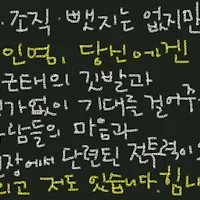 조직·뺏지는 없지만
인영, 당신에겐
근태의 깃발과
가없이 기대를 걸어주
람들의 마음과
장에서 단련된 전투력이
리고 저도 있습니다. 힘내